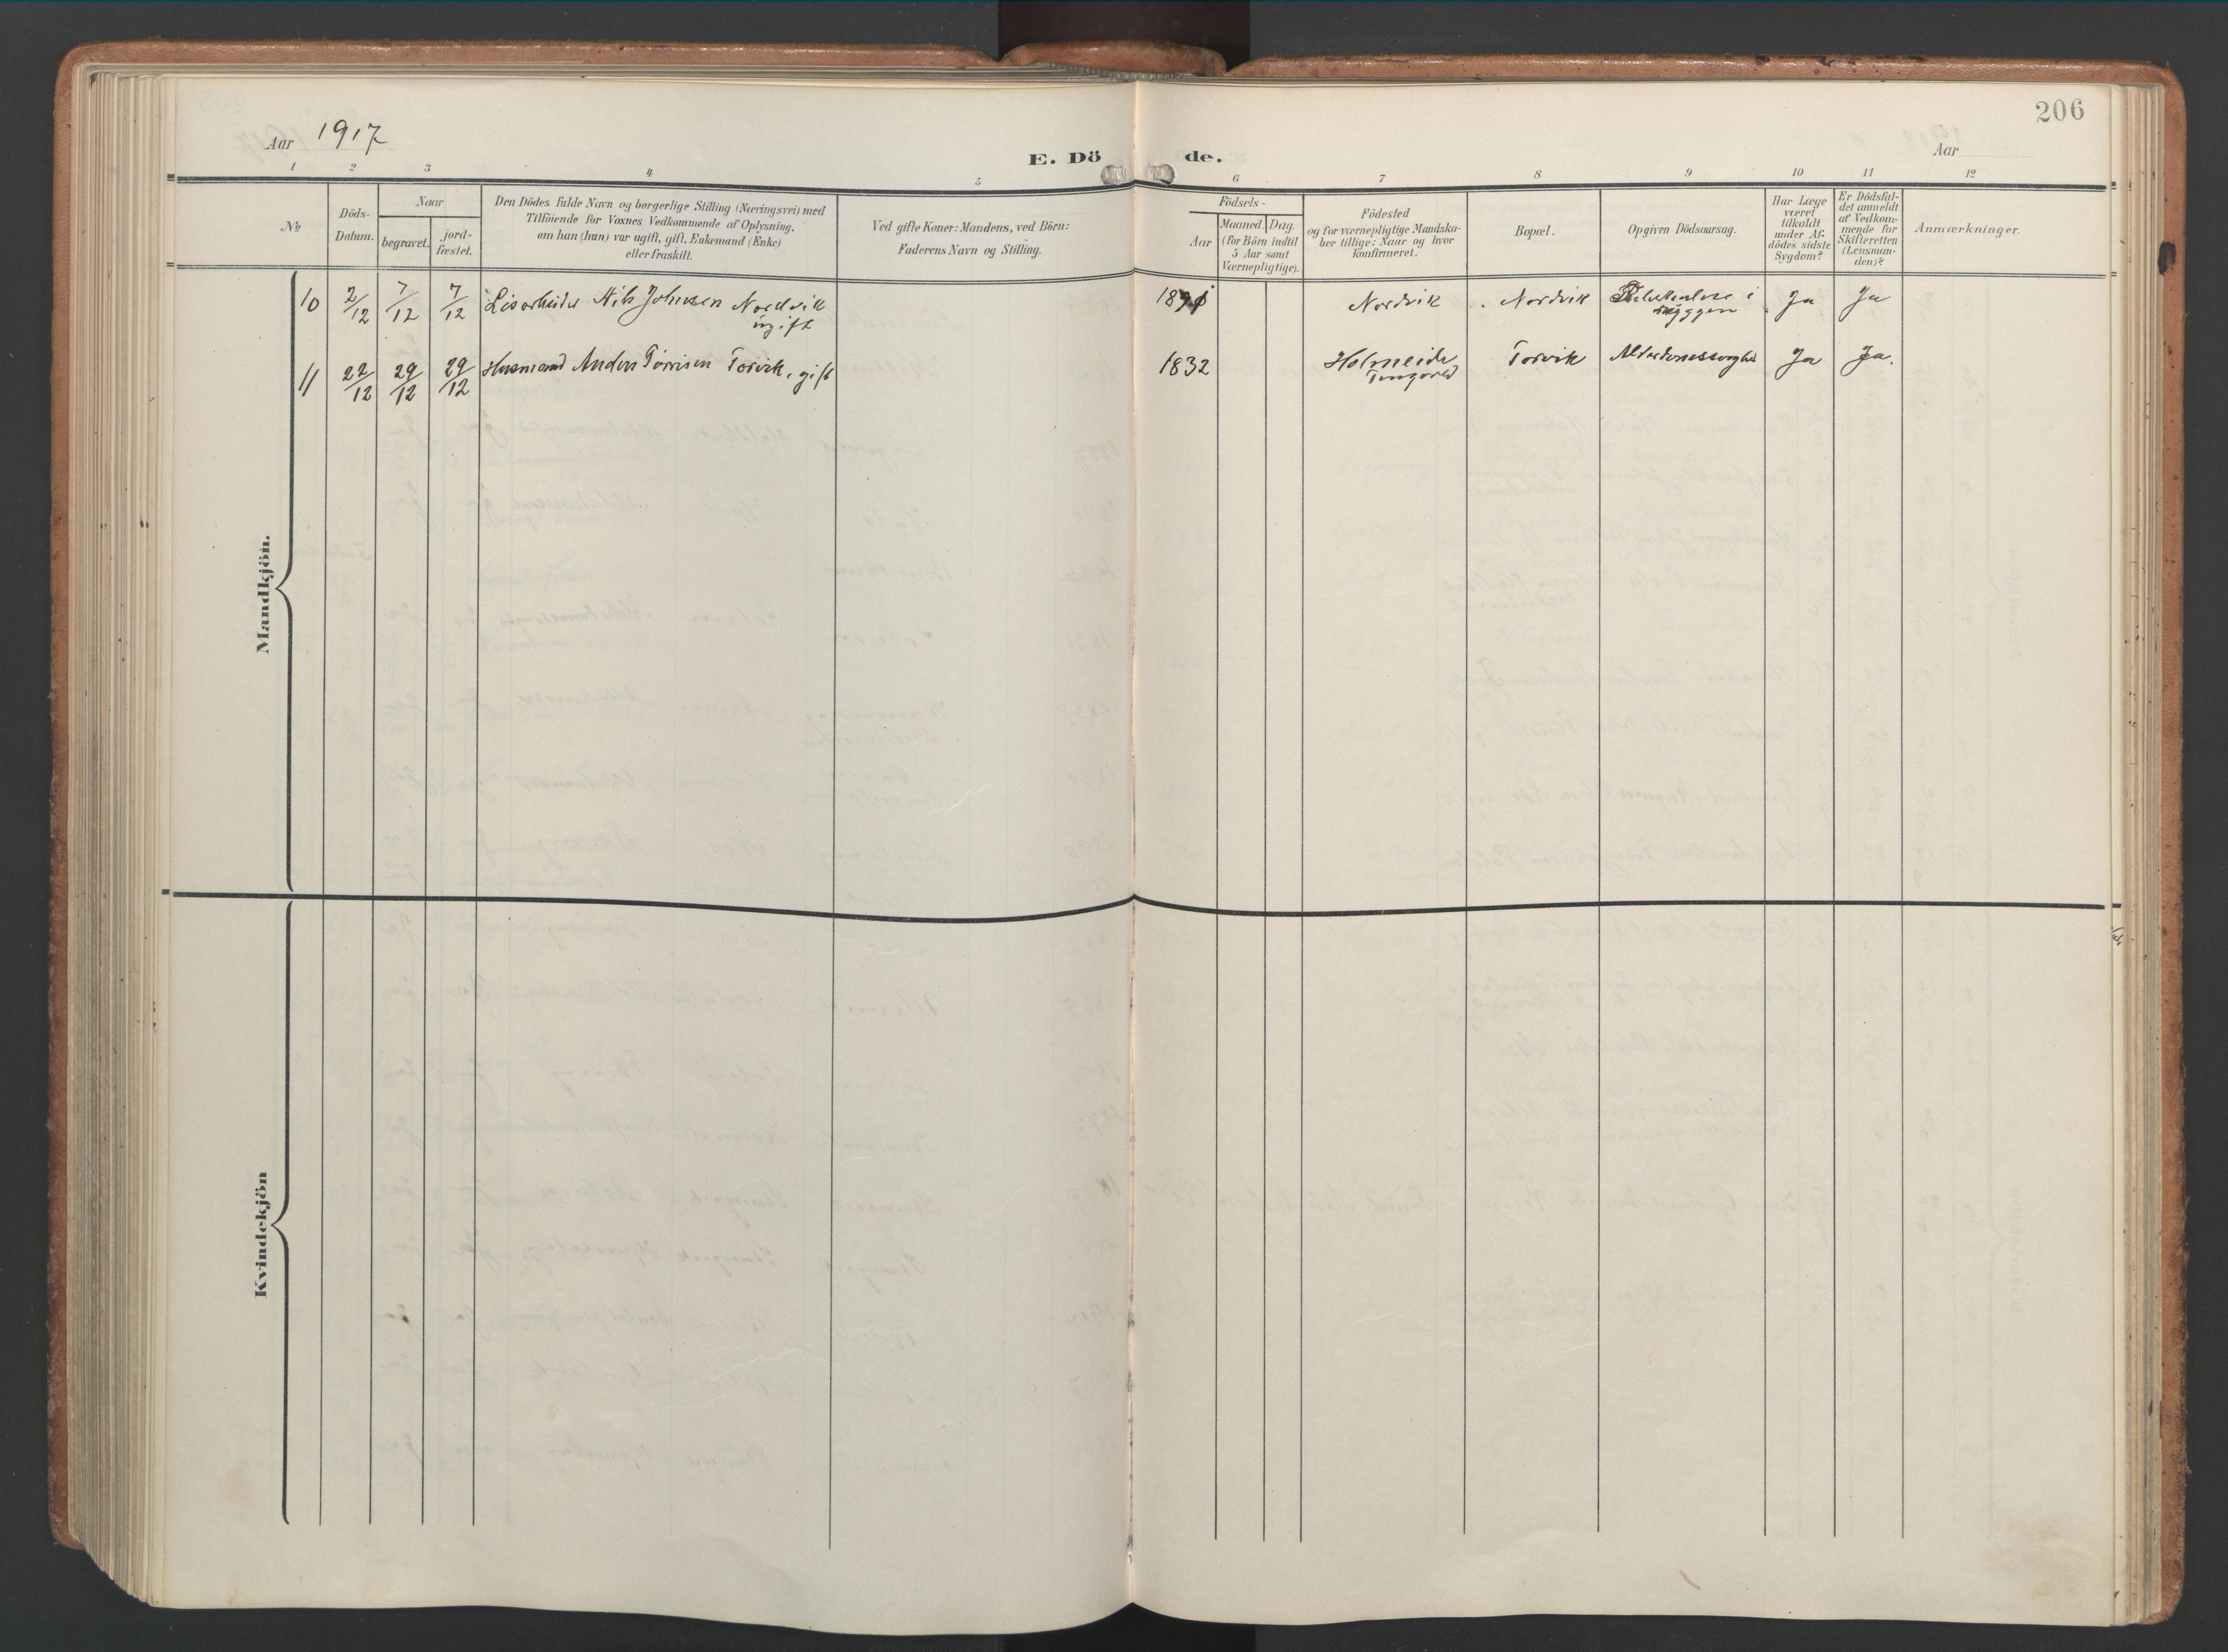 206
Aar 1917
E. Dö de.
Aar
1 2 3 4 5 6 7 8 9 10 11 12
No
Döds-
Datum.
Naar
begravet.
jord-
fæstet.
Den Dödes fulde Navn og borgerlige Stilling (Næringsvei) med
Tilföiende for Voxnes Vedkommende af Oplysning,
om han (hun) var ugift, gift, Enkemand (Enke)
eller fraskilt.
Ved gifte Koner: Mandens, ved Börn:
Faderens Navn og Stilling.
Födsels-
Aar
Maaned. Dag.
(for Börn indtil
5 Aar samt
Værnepligtige).
Födested
og for værnepligtige Mandska-
ber tillige: Naar og hvor
konfirmeret.
Bopæl.
Opgiven Dödsaarsag.
Har Læge
været
tilkaldt
under Af-
dödes sidste
Sygdom?
Er Dödsfal-
det anmeldt
af Vedkom-
mende for
Skifteretten
(Lensman-
den)?
Anmærkninger.
Mandkjön.
10 2/12 7/12 7/12 Nils Johnsen Nordvik Nordvik Nordvik i Ja Ja
ugift ryggen
11 22/12 29/12 29/12 Husmand Anders Torvik, gift 1832 Holmeide Torvik Ja Ja.
Tingvold
Kvindekjön